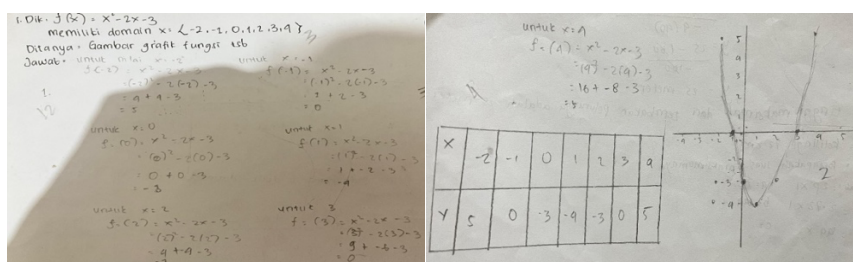 1. Dik. f(x) = x²-2x-3
memiliki domain x: {-2,-1,0,1,2,3,4}
Ditanya. Gambar grafik fungsi tsb
Jawab. untuk nilai x=-2
f(-2) = x²-2x-3
= (-2)²-2(-2)-3
= 4+4-3
= 5
untuk x=-1
f(-1) = x²-2x-3
= 1+2-3
= 0
untuk x=0
f=(0)= x²-2x-3
= (0)²-2(0)-3
= 0+0-3
untuk x=1
f(1) = x²-2x-3
= 1+-2-3
= -4
untuk x=2
f=(2)= x²-2x-3
= (2)²-2(2)-3
= 4+-4-3
untuk 3
f=(3)= x²-2x-3
= (3)²-2(3)-3
= 9+-6-3
= 0
untuk x=4
f=(4)= x²-2x-3
= (4)²-2(4)-3
= 16+-8-3
= 5
X -2 -1 0 1 2 3 4
Y 5 0 -3 -4 -3 0 5
2